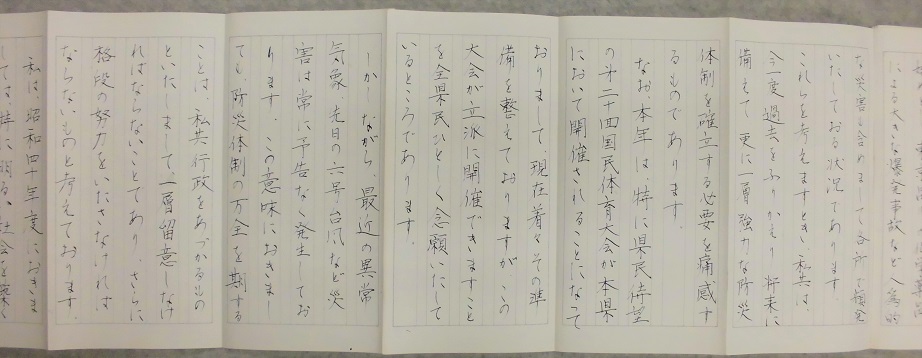 による大きな爆発事故など人為的
な災害も含めまして各所で頻発
いたしておる状況であります。
これらを考えますとき、私共は、
今一度過去をふりかえり将来に
備えて更に一層強力な防災
体制を確立する必要を痛感す
るものであります。
なお、本年は、特に県民待望
の第二十四回国民体育大会が本県
において開催されることになって
おりまして、現在着々その準
備を整えておりますが、この
大会が立派に開催できますこと
を全県民ひとしく念願いたして
いるところであります。
しかしながら、最近の異常
気象、先日の六号台風など災
害は常に予告なく発生してお
ります。この意味におきまし
ても、防災体制の万全を期する
ことは、私共行政をあづかるもの
といたしまして、一層留意しなけ
ればならないことであり、さらに
格段の努力をいたさなければ
ならないものと考えております。
私は、昭和四十年度におきま
しては、特に明るい社会を築く